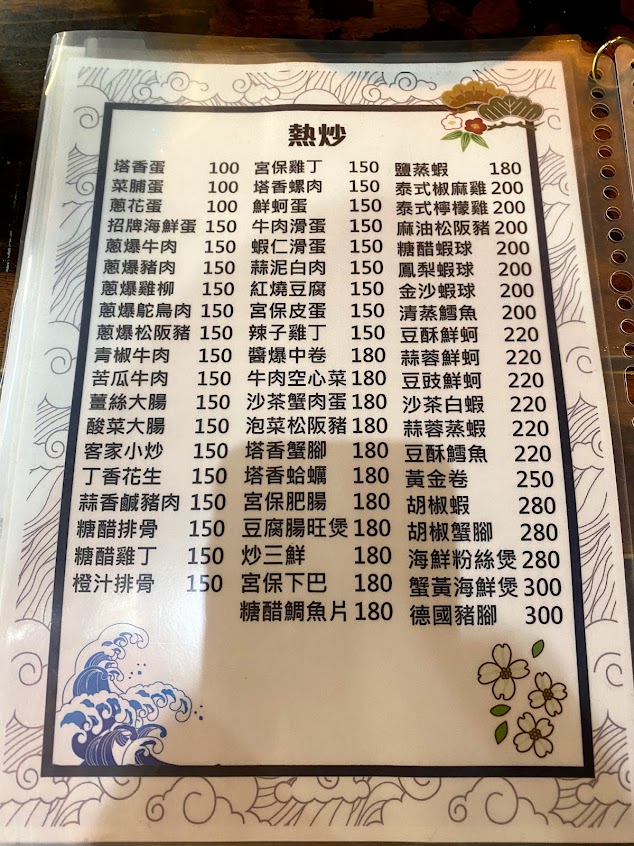 熱炒
塔香蛋 100
菜脯蛋 100
蔥花蛋 100
招牌海鮮蛋 150
蔥爆牛肉 150
蔥爆豬肉 150
蔥爆雞柳 150
蔥爆鴕鳥肉 150
蔥爆松阪豬 150
青椒牛肉 150
苦瓜牛肉 150
薑絲大腸 150
酸菜大腸 150
客家小炒 150
丁香花生 150
蒜香鹹豬肉 150
糖醋排骨 150
糖醋雞丁 150
橙汁排骨 150
宮保雞丁 150
塔香螺肉 150
鮮蚵蛋 150
牛肉滑蛋 150
蝦仁滑蛋 150
蒜泥白肉 150
紅燒豆腐 150
宮保皮蛋 150
辣子雞丁 150
醬爆中卷 180
牛肉空心菜 180
沙茶蟹肉蛋 180
泡菜松阪豬 180
塔香蟹腳 180
塔香蛤蠣 180
宮保肥腸 180
豆腐腸旺煲 180
炒三鮮 180
宮保下巴 180
糖醋鯛魚片 180
鹽蒸蝦 180
泰式椒麻雞 200
泰式檸檬雞 200
麻油松阪豬 200
糖醋蝦球 200
鳳梨蝦球 200
金沙蝦球 200
清蒸鱈魚 200
豆酥鮮蚵 220
蒜蓉鮮蚵 220
豆豉鮮蚵 220
沙茶白蝦 220
蒜蓉蒸蝦 220
豆酥鱈魚 220
黃金卷 250
胡椒蝦 280
胡椒蟹腳 280
海鮮粉絲煲 280
蟹黃海鮮煲 300
德國豬腳 300